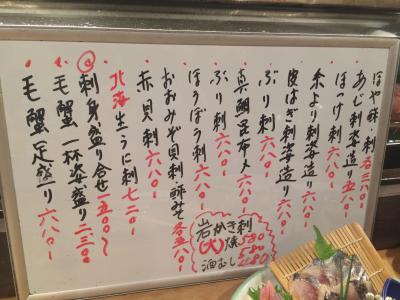 ほや酢・刺各三八〇-
あじ刺姿造り五八〇-
ほっけ刺 六八〇-
糸より刺姿造り六八〇-
皮はぎ刺姿造り六八〇-
ぶり刺 六八〇-
真鯛昆布〆 六八〇-
ぶり刺 六八〇-
ほうぼう刺 六八〇-
おおみぞ貝刺酢芝各五八〇-
赤貝刺 六八〇-
北海生うに刺 七二〇-
刺身盛り合せ 一五〇〇〜
毛蟹一杯姿盛り 二三八〇-
毛蟹足盛り 六八〇-
岩かき刺 580
(大)焼 580
酒むし 580